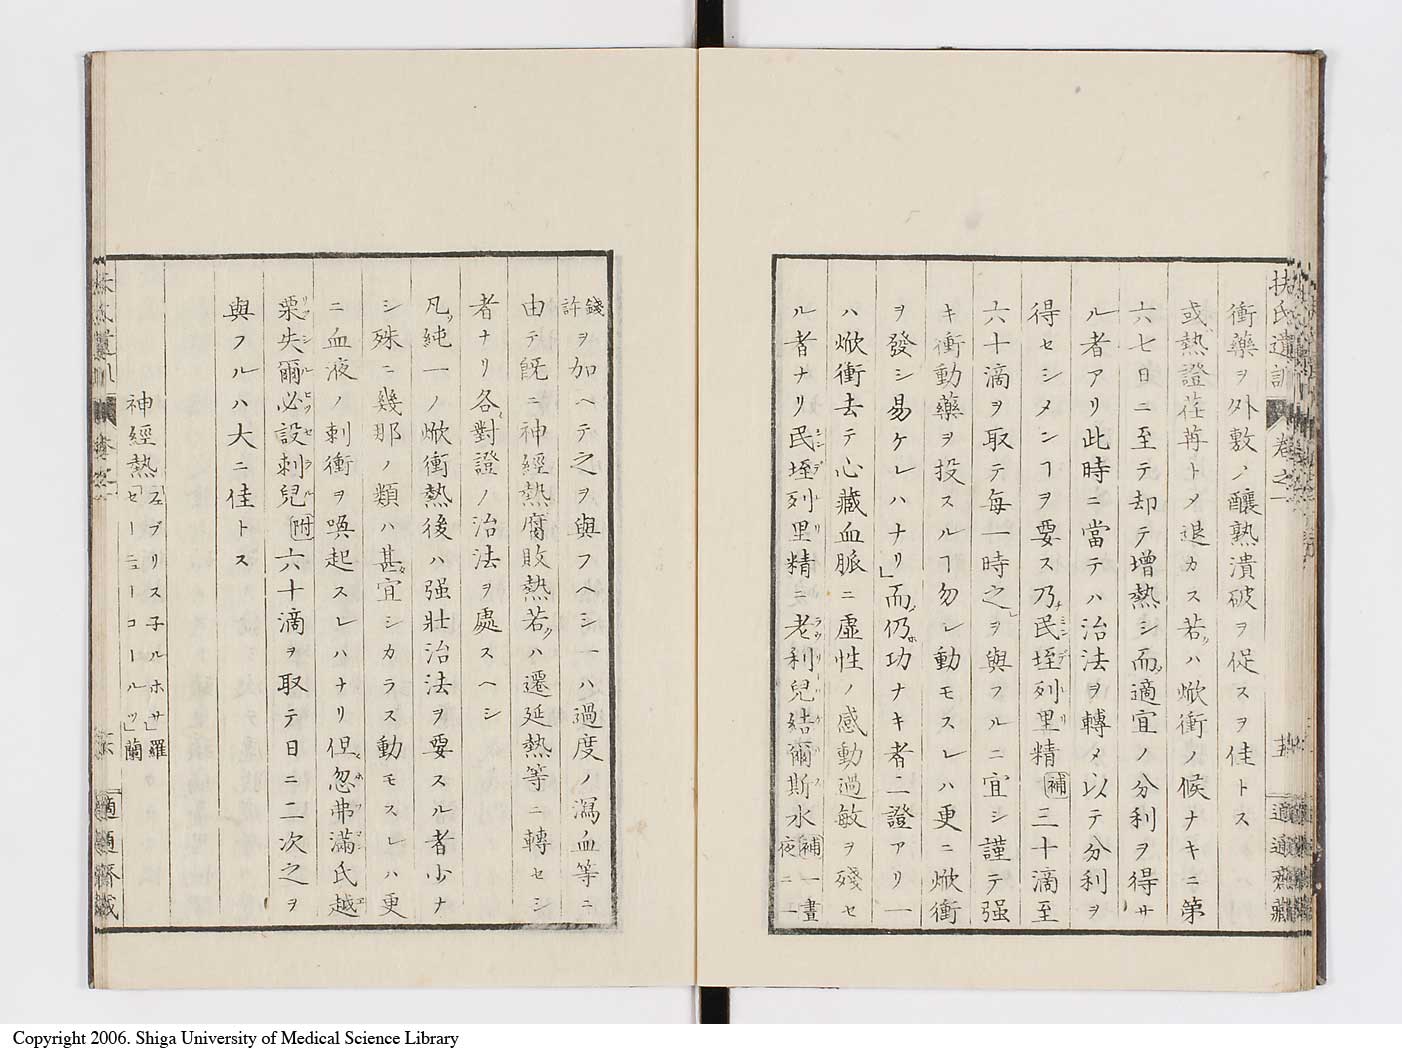 扶氏遺訓 卷之一 適適齋藏
衝藥ヲ外敷ノ釀熟潰破ヲ促スヲ佳トス
或熱證荏苒トメ退カス若クハ焮衝ノ候ナキニ第
六七日ニ至テ却テ增熱シ而適宜ノ分利ヲ得サ
ル者アリ此時ニ當テハ治法ヲ轉メ以テ分利ヲ
得セシメンヿヲ要ス乃チ民垤列里精補三十滴至
六十滴ヲ取テ每一時之レヲ與フルニ宜シ謹テ强
キ衝動藥ヲ投スルヿ勿レ動モスレハ更ニ焮衝
ヲ發シ易ケレハナリ」而仍功ナキ者二證アリ一
ハ焮衝去テ心藏血脈ニ虛性ノ感動過敏ヲ殘セ
ル者ナリ民垤列里精ニ老利兒結爾斯水補一晝夜ニ一
錢許ヲ加ヘテ之ヲ與フヘシ一ハ過度ノ瀉血等ニ
由テ旣ニ神經熱腐敗熱若クハ遷延熱等ニ轉セシ
者ナリ各對證ノ治法ヲ處スヘシ
凡ソ純一ノ焮衝熱後ハ强壯治法ヲ要スル者少ナ
シ殊ニ幾那ノ類ハ甚宜シカラス動モスレハ更
ニ血液ノ刺衝ヲ喚起スレハナリ但忽弗滿氏越
栗失爾必設剌兒附六十滴ヲ取テ日ニ二次之ヲ
與フルハ大ニ佳トス
神經熱「フェブリス子ルホサ」羅「セーニューコールツ」蘭
適適齋藏
Copyright 2006. Shiga University of Medical Science Library